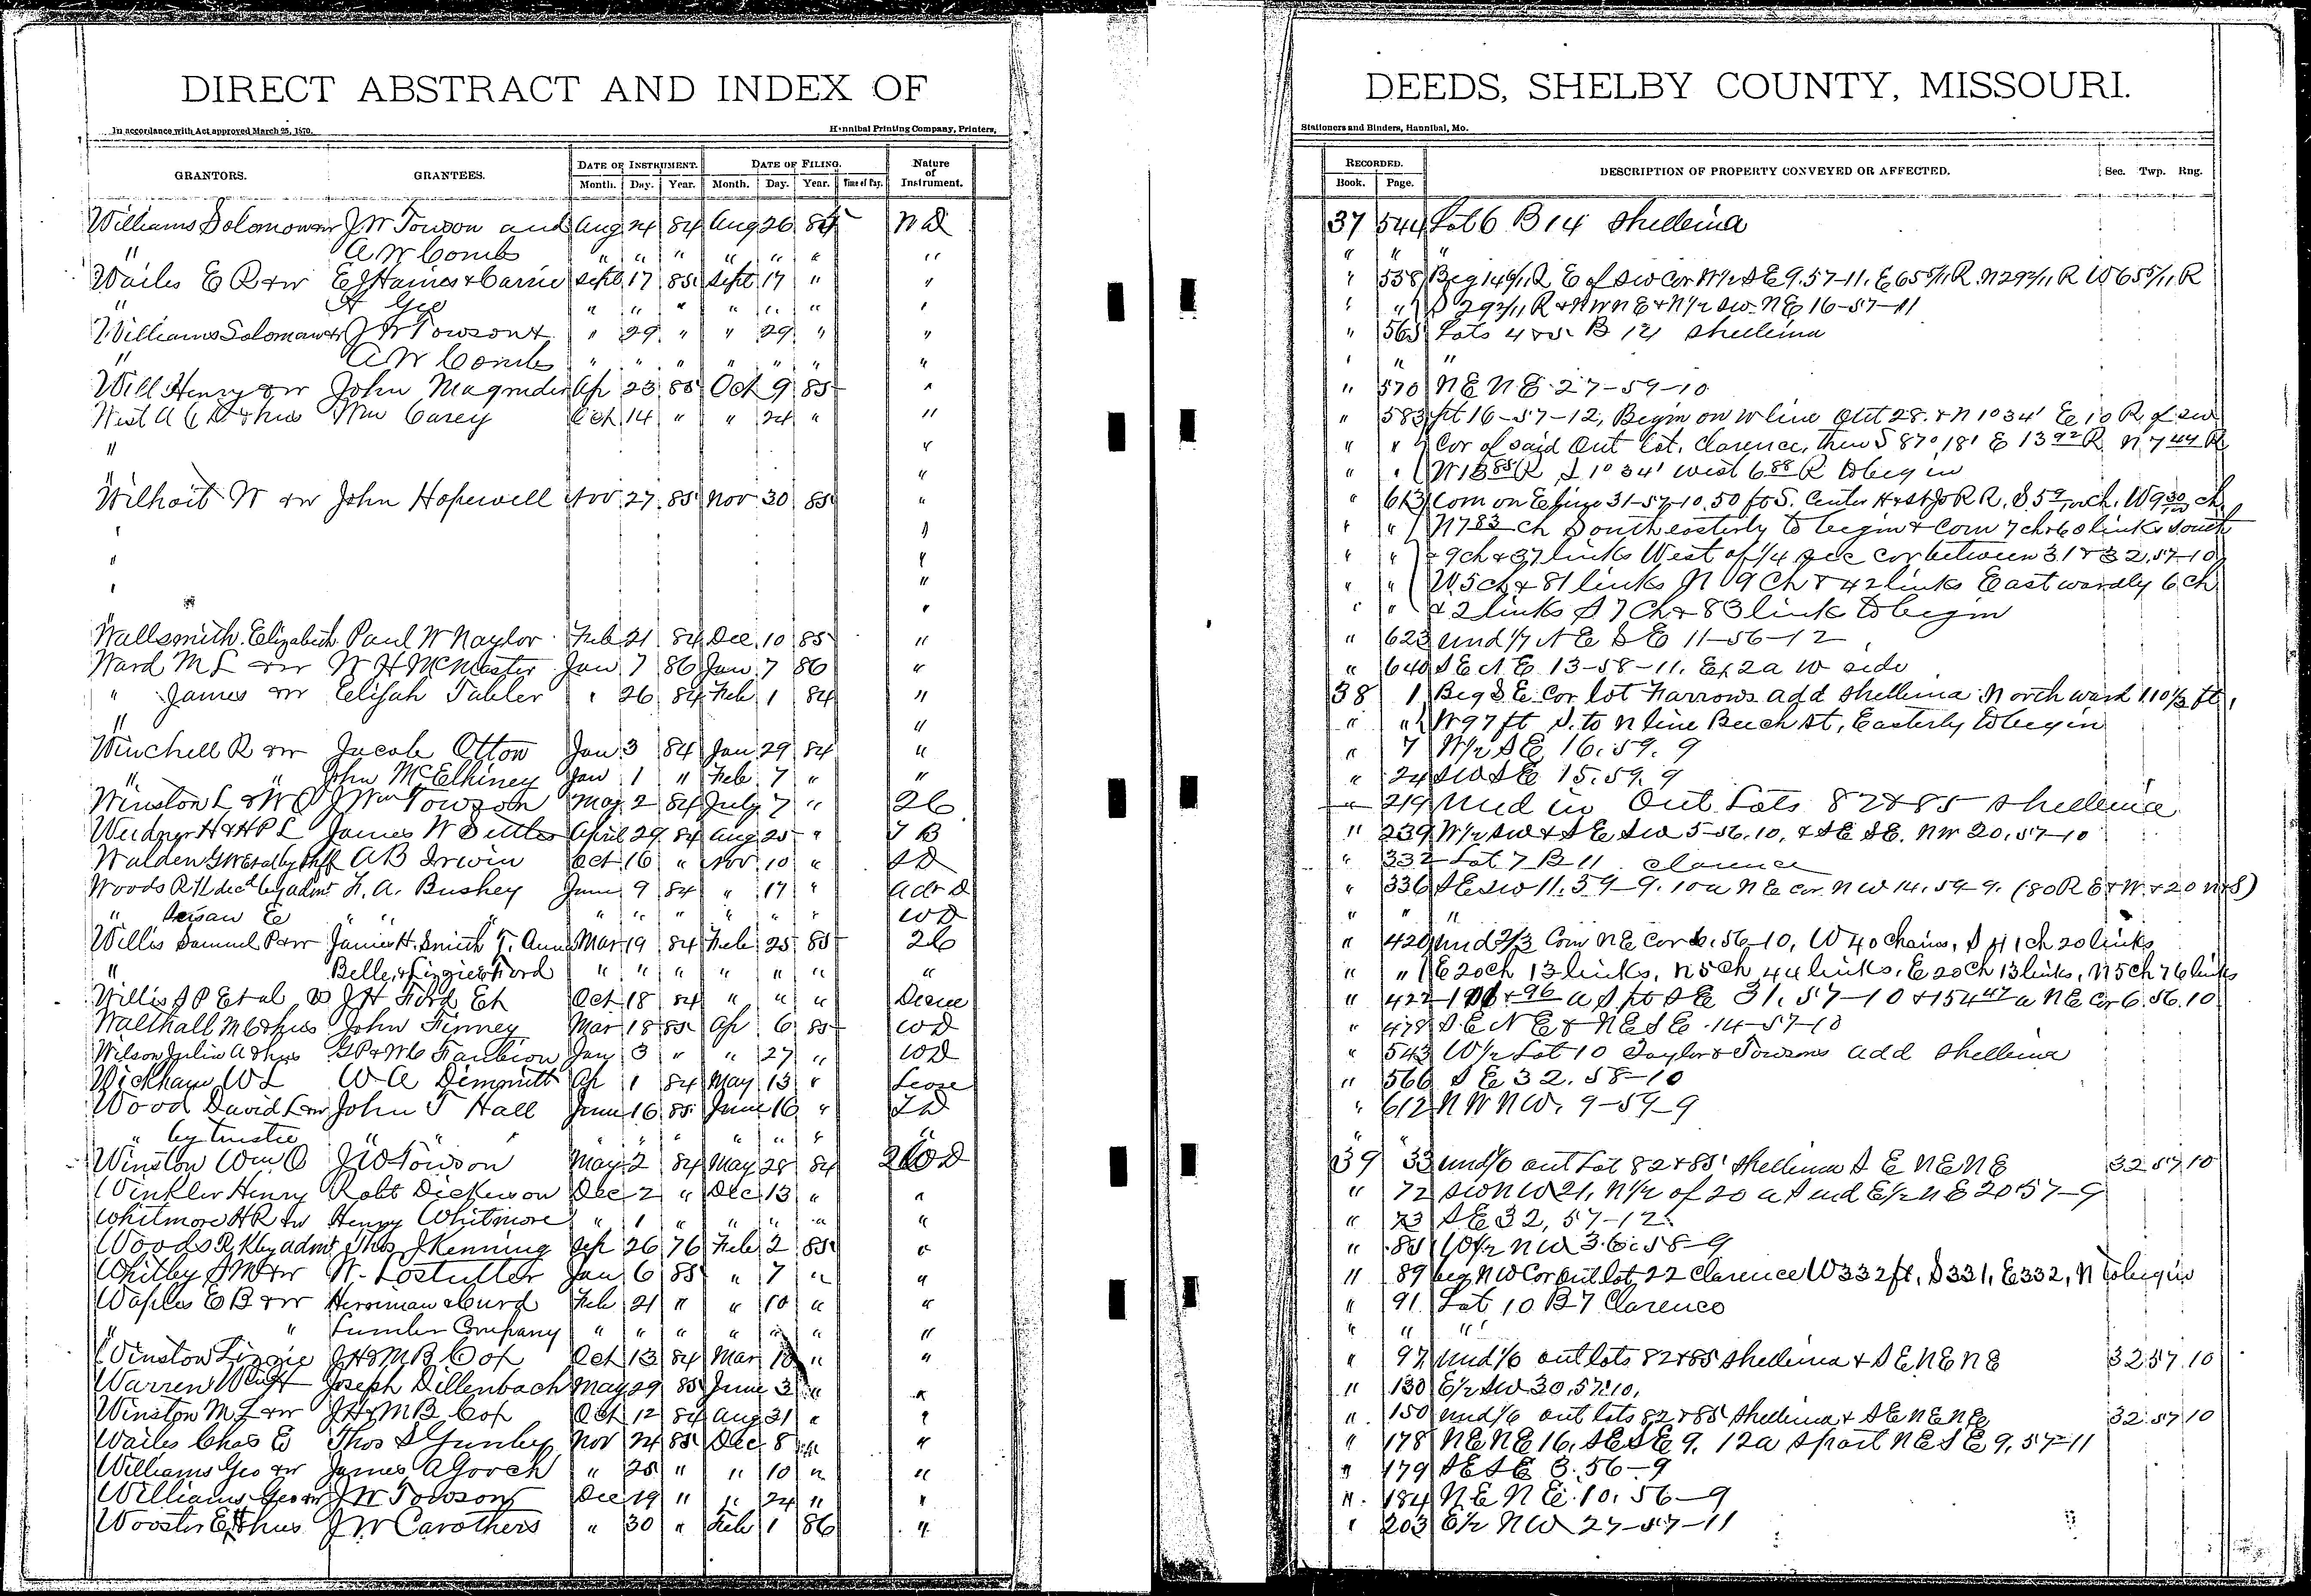 DIRECT ABSTRACT AND INDEX OF
In accordance with Act approved March 25, 1870.
Hannibal Printing Company, Printers,
GRANTORS. GRANTEES. DATE OF INSTRUMENT. DATE OF FILING. Nature of Instrument.
Month. Day. Year. Month. Day. Year. Time of Day.
Williams Solomon &w J W Towson and Aug 24 84 Aug 26 85 W D
" A W Combs " " " " " " "
Wailes E R &w E J Haines & Carrie Sept 17 85 Sept 17 " "
" A Geo " " " " " " "
Williams Soloman &w J W Towson & " 29 " " 29 " "
" A W Combs " " " " " " "
Will Henry &w John Magruder Ap 23 85 Oct 9 85 "
West A C & hus Wm Carey Oct 14 " " 24 " "
" "
" "
Wilhoit W &w John Hopewell Nov 27 85 Nov 30 85 "
" "
" "
" "
" "
Wallsmith Elizabeth Paul W Naylor Feb 21 84 Dec 10 85 "
Ward M L &w W H McMaster Jan 7 86 Jan 7 86 "
" James &w Elijah Tabler " 26 84 Feb 1 84 "
" "
Winchell R &w Jacob Otton Jan 3 84 Jan 29 84 "
" " John McElhiney Jan 1 " Feb 7 " "
Winston L & W O J Wm Towson May 2 84 July 7 " 26
Weidner H & H P L James W Settles April 29 84 Aug 25 " T B
Walden G W et al by Shff A B Irwin Oct 16 " Nov 10 " S D
Woods R K decd by admr F. A. Bushey June 9 84 " 17 " Adr D
" Susan E " " " " " " " " W D
Willis Samuel P &w James H. Smith T. Anna Mar 19 84 Feb 25 85 26
" Belle, & Lizzie Ford " " " " " " "
Willis S P Et al to J H Ford Et Oct 18 84 " " " Decree
Walthall M C & hus John Finney Mar 18 85 Ap 6 85 W D
Wilson Julia A & hus G P & W C Faubion Jan 3 " " 27 " W D
Wickham W L W A Dimmitt Ap 1 84 May 13 " Lease
Wood David L &w John T Hall June 16 85 June 16 " T D
" by trustee " " " " " " " " " "
Winston Wm O J W Towson May 2 84 May 28 84 W D
Winkler Henry Robt Dickerson Dec 2 " Dec 13 " "
Whitmore H R &w Henry Whitmore " 1 " " " " "
Woods R K by admr Thos J Kenning Sep 26 76 Feb 2 85 "
Whitby S M &w W. Lostutter Jan 6 85 " 7 " "
Waples E B &w Herriman & Curd Feb 21 " " 10 " "
" " Lumber Company " " " " " " "
Winston Lizzie J H & M B Cox Oct 13 84 Mar 10 " "
Warren Joseph Dillenbach May 29 85 June 3 " "
Winston M L &w J H & M B Cox Oct 12 84 Aug 31 " "
Wailes Chas E Thos S Gunby Nov 24 85 Dec 8 " "
Williams Geo &w James A Gooch " 25 " " 10 " "
Williams Geo &w J W Towson Dec 19 " " 24 " "
Wooster E & hus J W Carothers " 30 " Feb 1 86 "
DEEDS, SHELBY COUNTY, MISSOURI.
Stationers and Binders, Hannibal, Mo.
RECORDED. DESCRIPTION OF PROPERTY CONVEYED OR AFFECTED. Sec. Twp. Rng.
Book. Page.
37 544 Lot 6 B 14 Shelbina
" " "
" 558 Beg 14 6/11 R E of SW Cor W 1/2 SE 9.57-11. E 65 5/11 R. N 29 2/11 R W 65 5/11 R
" " S 29 2/11 R & NW NE & N 1/2 SW NE 16-57-11
" 565 Lots 4 & 5 B 12 Shelbina
" " "
" 570 NE NE 27-59-10
" 583 pt 16-57-12, Begin on W line Outlt 28. & N 1° 34' E 10 R of SW
" " Cor of said Out lot, Clarence, then S 87° 18' E 13 92 R N 7 44 R
" " W 13 85 R S 1° 34' West 6 88 R to begin
" 613 Com on E line 31-57-10, 50 ft S. Center H & St Jo R R, S 5 ch. W 9 30 ch
" " N 7 83 ch South easterly to begin & Com 7 ch & 60 links South
" " & 9 ch & 37 links West of 1/4 Sec cor between 31 & 32, 57-10
" " W 5 ch & 81 links N 9 Ch & 42 links Eastwardly 6 ch
" " & 2 links S 7 Ch & 83 link to begin
" 623 Und 1/7 NE SE 11-56-12
" 640 SE NE 13-58-11. Ex 2a W side
38 1 Beg SE Cor lot Farrows add Shelbina Northward 110 1/3 ft,
" " W 97 ft S. to N line Beech St, Easterly to begin
" 7 W 1/2 SE 16. 59. 9
" 24 SW SE 15. 59. 9
" 219 Und in Out Lots 82 & 85 Shelbina
" 239 W 1/2 SW & SE SW 5-56.10, & SE SE. NW 20.57-10
" 332 Lot 7 B 11 Clarence
" 336 SE SW 11. 59-9. 10a NE cor. NW 14. 59-9. (80 R E & W. & 20 N & S)
" " "
" 420 Und 2/3 Com NE Cor 6. 56-10, W 40 chains, S 41 ch 20 links
" " E 20 ch 13 links, N 5 ch 44 links, E 20 ch 13 links, N 5 ch 76 links
" 422 96 a S pt SE 31. 57-10 & 154 47 a NE Cor 6. 56. 10
" 478 SE NE & NE SE 14-57-10
" 543 W 1/2 Lot 10 Taylor & Towsons add Shelbina
" 566 SE 32. 58-10
" 612 NW NW. 9-59-9
" "
39 33 Und 1/6 out Lot 82 & 85 Shelbina SE NE NE 32 57 10
" 72 SW NW 21, N 1/2 of 20 a S end E 1/2 NE 20 57-9
" 73 SE 32, 57-12
" 85 W 1/2 NW 36. 58-9
" 89 beg NW Cor outlot 22 Clarence W 332 ft, S 331, E 332, N to begin
" 91 Lot 10 B 7 Clarence
" " "
" 97 Und 1/6 out lots 82 & 85 Shelbina & SE NE NE 32 57 10
" 130 E 1/2 SW 30. 57. 10.
" 150 Und 1/6 out lots 82 & 85 Shelbina & SE NE NE 32 57 10
" 178 NE NE 16, SE SE 9, 12a S part NE SE 9. 57-11
" 179 SE SE 3. 56-9
" 184 NE NE 10. 56-9
" 203 E 1/2 NW 27-57-11